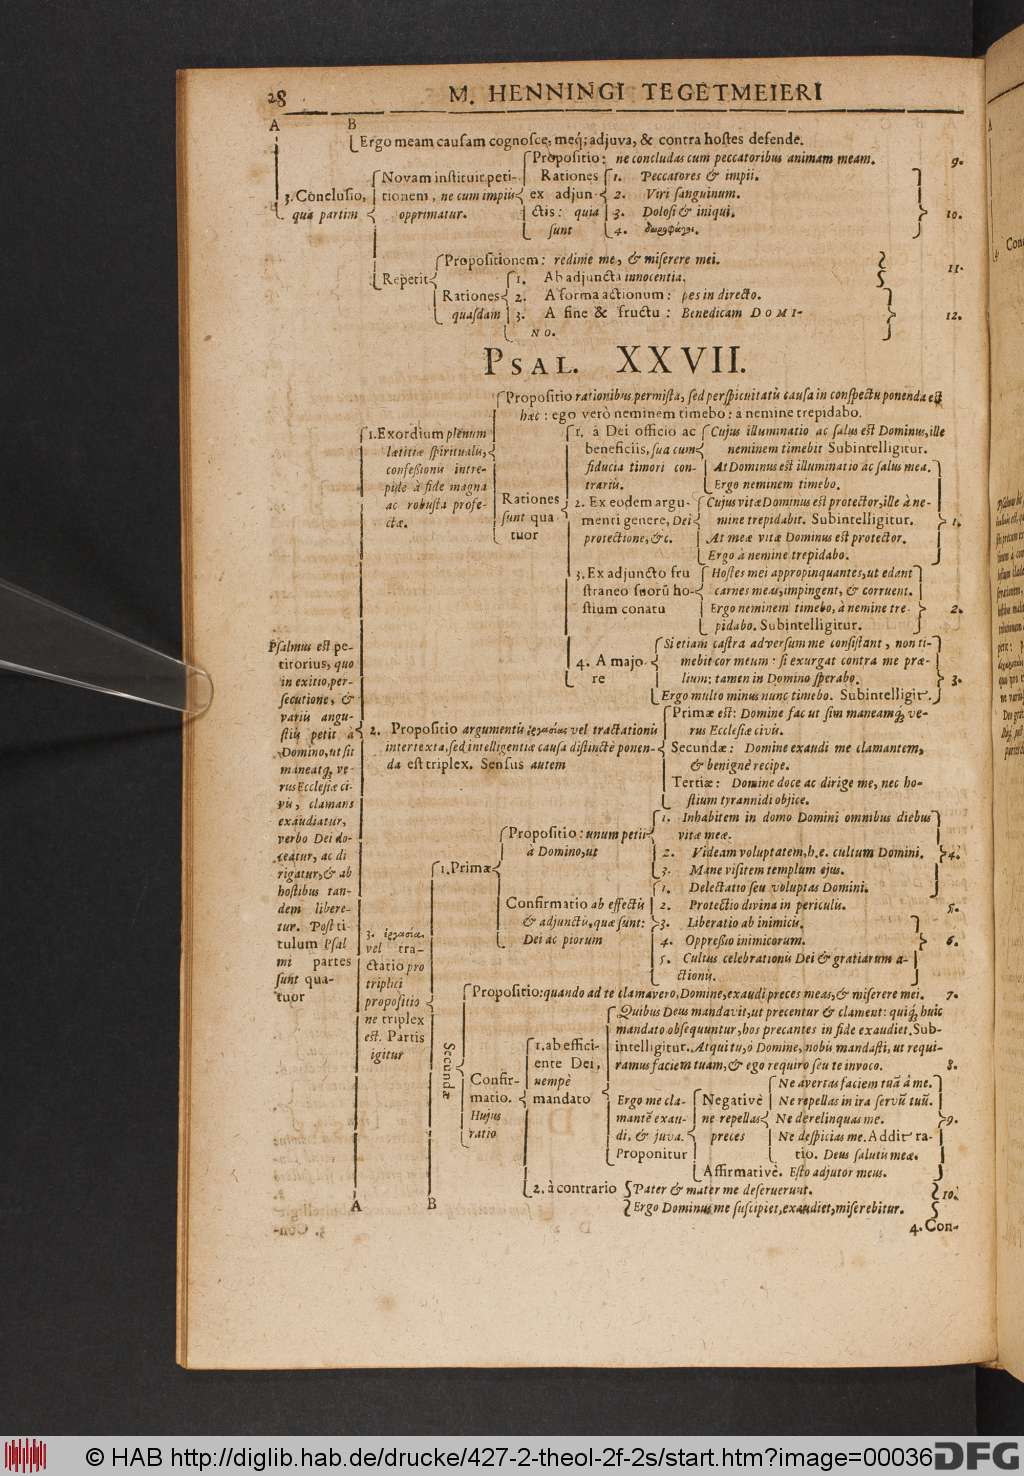 28
M. HENNINGI TEGETMEIERI
A B
Ergo meam causam cognosce, meq́; adjuva, & contra hostes defende.
3. Conclusio,
qua partim
Novam instituit peti-
tionem, ne cum impiis
opprimatur.
Propositio: ne concludas cum peccatoribus animam meam. 9.
Rationes
ex adjun-
ctis: quia
sunt
1. Peccatores & impii.
2. Viri sanguinum.
3. Dolosi & iniqui. 10.
4.
Repetit
Propositionem: redime me, & miserere mei. 11.
Rationes
quasdam
1. Ab adjuncta innocentia.
2. A forma actionum: pes in directo.
3. A fine & fructu: Benedicam DOMI- 12.
NO.
PSAL. XXVII.
Psalmus est pe-
titorius, quo
in exitio, per-
secutione, &
variis angu-
stiis petit à
Domino, ut sit
maneatq́, ve-
rus Ecclesiæ ci-
vis, clamans
exaudiatur,
verbo Dei do-
ceatur, ac di
rigatur, & ab
hostibus tan-
dem libere-
tur. Post ti
tulum Psal
mi partes
sunt qua-
tuor
1. Exordium plenum
lætitiæ spiritualis,
confessionis intre-
pidæ à fide magna
ac robusta profe-
ctæ.
Propositio rationibus permista, sed perspicuitatis causa in conspectu ponenda est
hæc: ego verò neminem timebo: a nemine trepidabo.
Rationes
sunt qua
tuor
1. à Dei officio ac
beneficiis, sua cum
fiducia timori con-
trariis.
Cujus illuminatio ac salus est Dominus, ille
neminem timebit Subintelligitur.
At Dominus est illuminatio ac salus mea.
Ergo neminem timebo.
2. Ex eodem argu-
menti genere, Dei
protectione, &c.
Cujus vitæ Dominus est protector, ille à ne-
mine trepidabit. Subintelligitur. 1.
At meæ vitæ Dominus est protector.
Ergo à nemine trepidabo.
3. Ex adjuncto fru
straneo suorū ho-
stium conatu
Hostes mei appropinquantes, ut edant
carnes meas, impingent, & corruent.
Ergo neminem timebo, à nemine tre- 2.
pidabo. Subintelligitur.
4. A majo
re
Si etiam castra adversum me consistant, non ti-
mebit cor meum: si exurgat contra me præ-
lium: tamen in Domino sperabo. 3.
Ergo multo minus nunc timebo. Subintelligit.
2. Propositio argumentis ἐργασίας vel tractationis
intertexta, sed intelligentiæ causa distinctè ponen-
da est triplex. Sensus autem
Primæ est: Domine fac ut sim maneamq́, ve-
rus Ecclesiæ civis.
Secundæ: Domine exaudi me clamantem,
& benignè recipe.
Tertiæ: Domine doce ac dirige me, nec ho-
stium tyrannidi objice.
3. ἐργασία
vel tra-
ctatio pro
triplici
propositio
ne triplex
est. Partis
igitur
1. Primæ
Propositio: unum petii
à Domino, ut
1. Inhabitem in domo Domini omnibus diebus
vitæ meæ.
2. Videam voluptatem, h.e. cultum Domini. 4.
3. Mane visitem templum ejus.
Confirmatio ab effectis
& adjunctis, quæ sunt:
Dei ac piorum
1. Delectatio seu voluptas Domini.
2. Protectio divina in periculis. 5.
3. Liberatio ab inimicis.
4. Oppressio inimicorum. 6.
5. Cultus celebrationis Dei & gratiarum a-
ctionis.
Secundæ
Propositio: quando ad te clamavero, Domine, exaudi preces meas, & miserere mei. 7.
Confir-
matio.
Hujus
ratio
1. ab effici-
ente Dei,
nempè
mandato
Quibus Deus mandavit, ut precentur & clament: quiq́, huic
mandato obsequuntur, hos precantes in fide exaudiet. Sub-
intelligitur. Atqui tu, ò Domine, nobis mandasti, ut requi-
ramus faciem tuam, & ego requiro seu te invoco. 8.
Ergo me cla-
mantē exau-
di, & juva.
Proponitur
Negativè
ne repellas
preces
Ne avertas faciem tuā à me.
Ne repellas in ira servū tuū.
Ne derelinquas me. 9.
Ne despicias me. Addit ra-
tio. Deus salutis meæ.
Affirmativè. Esto adjutor meus.
2. à contrario
Pater & mater me deseruerunt. 10.
Ergo Dominus me suscipiet, exaudiet, miserebitur.
A B
4. Con-
© HAB http://diglib.hab.de/drucke/427-2-theol-2f-2s/start.htm?image=00036
DFG